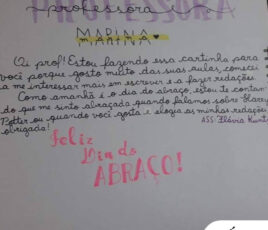 PROFESSORA
professora
MARINA
Oi prof! Estou fazendo essa cartinha para
você porque gosto muito das suas aulas, comecei
a me interessar mais em escrever e a fazer redações.
Como amanhã é o dia do abraço, estou te contan
do que me sinto abraçada quando falamos sobre Harry
Potter ou quando você gosta e elogia as minhas redações
obrigada!
ASS: Flávia
Feliz
Dia do
ABRAÇO!